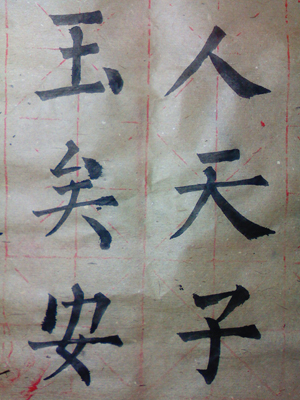 人天子
玉矣安